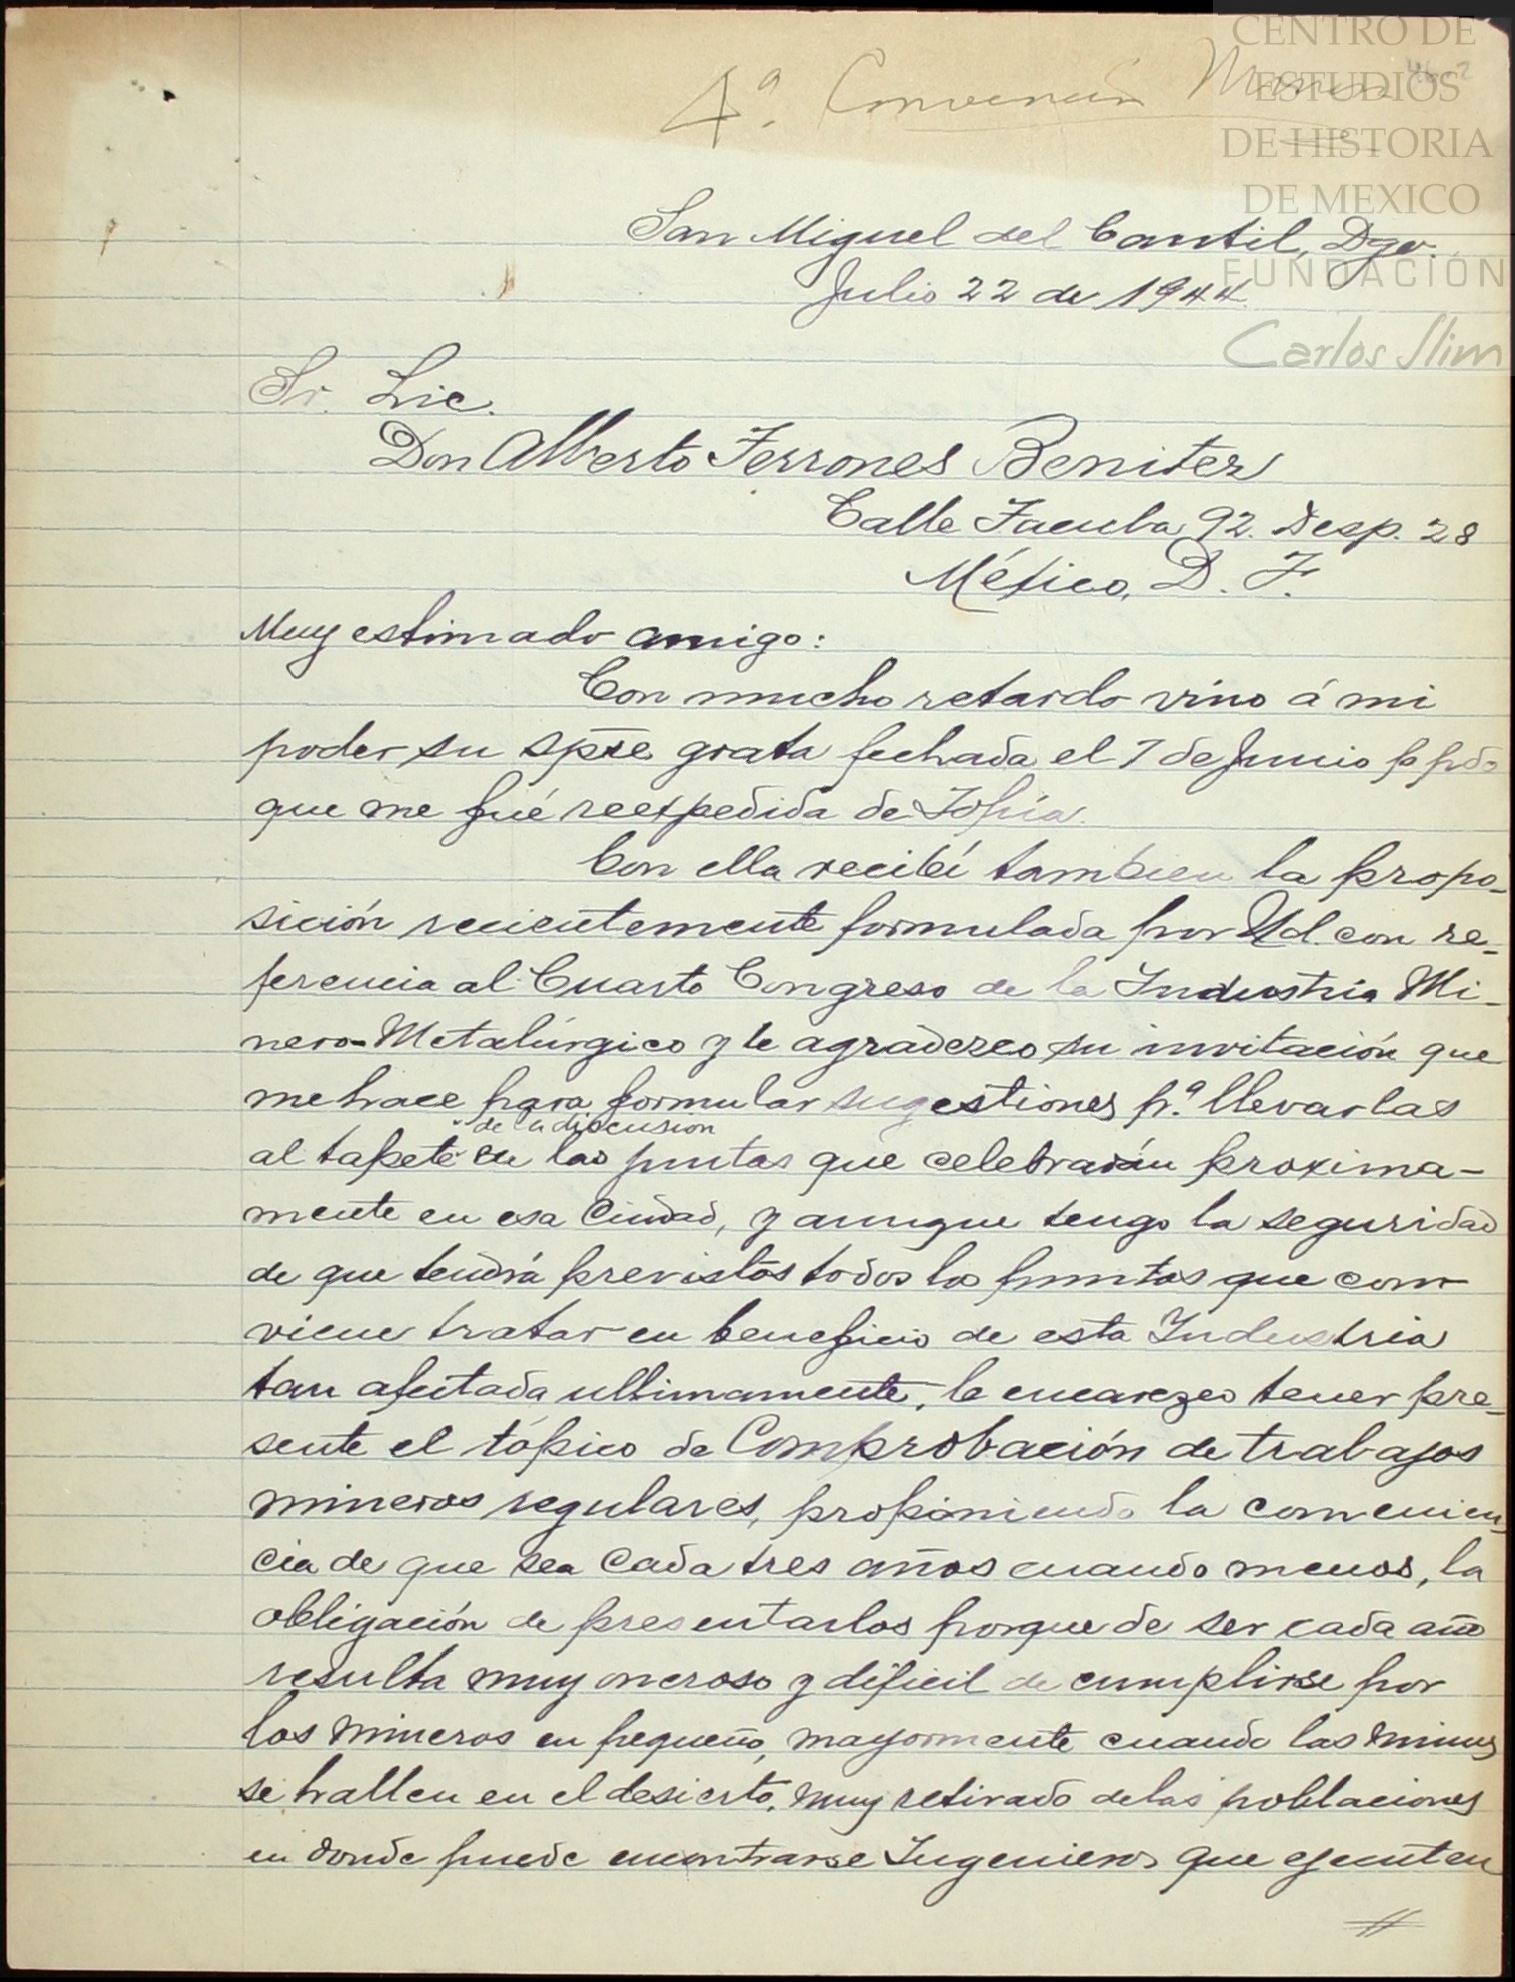 4ª. Convención Minera
CENTRO DE
ESTUDIOS
DE HISTORIA
DE MEXICO
FUNDACIÓN
Carlos Slim
San Miguel del Cantil, Dgo.
Julio 22 de 1944.
Sr. Lic.
Don Alberto Terrones Benitez
Calle Tacuba 92. Desp. 28
México, D. F.
Muy estimado amigo:
Con mucho retardo vino á mi
poder su spre grata fechada el 7 de Junio ppdo
que me fué reexpedida de Topia.
Con ella recibí tambien la propo-
sición recientemente formulada por Ud. con re-
ferencia al Cuarto Congreso de la Industria Mi-
nero-Metalúrgico y le agradezco su invitación que
me hace para formular sugestiones pª. llevarlas
al tapete de la discusion en las juntas que celebrarán proxima-
mente en esa Ciudad, y aunque tengo la seguridad
de que tendrá previstos todos los puntos que con-
viene tratar en beneficio de esta Industria
tan afectada ultimamente, le encarezco tener pre-
sente el tópico de Comprobación de trabajos
mineros regulares, proponiendo la convenien-
cia de que sea cada tres años cuando menos, la
obligación de presentarlos porque de ser cada año
resulta muy oneroso y dificil de cumplirse por
los mineros en pequeño, mayormente cuando las minas
se hallen en el desierto, muy retirado de las poblaciones
en donde puede encontrarse Ingenieros que ejecuten
//